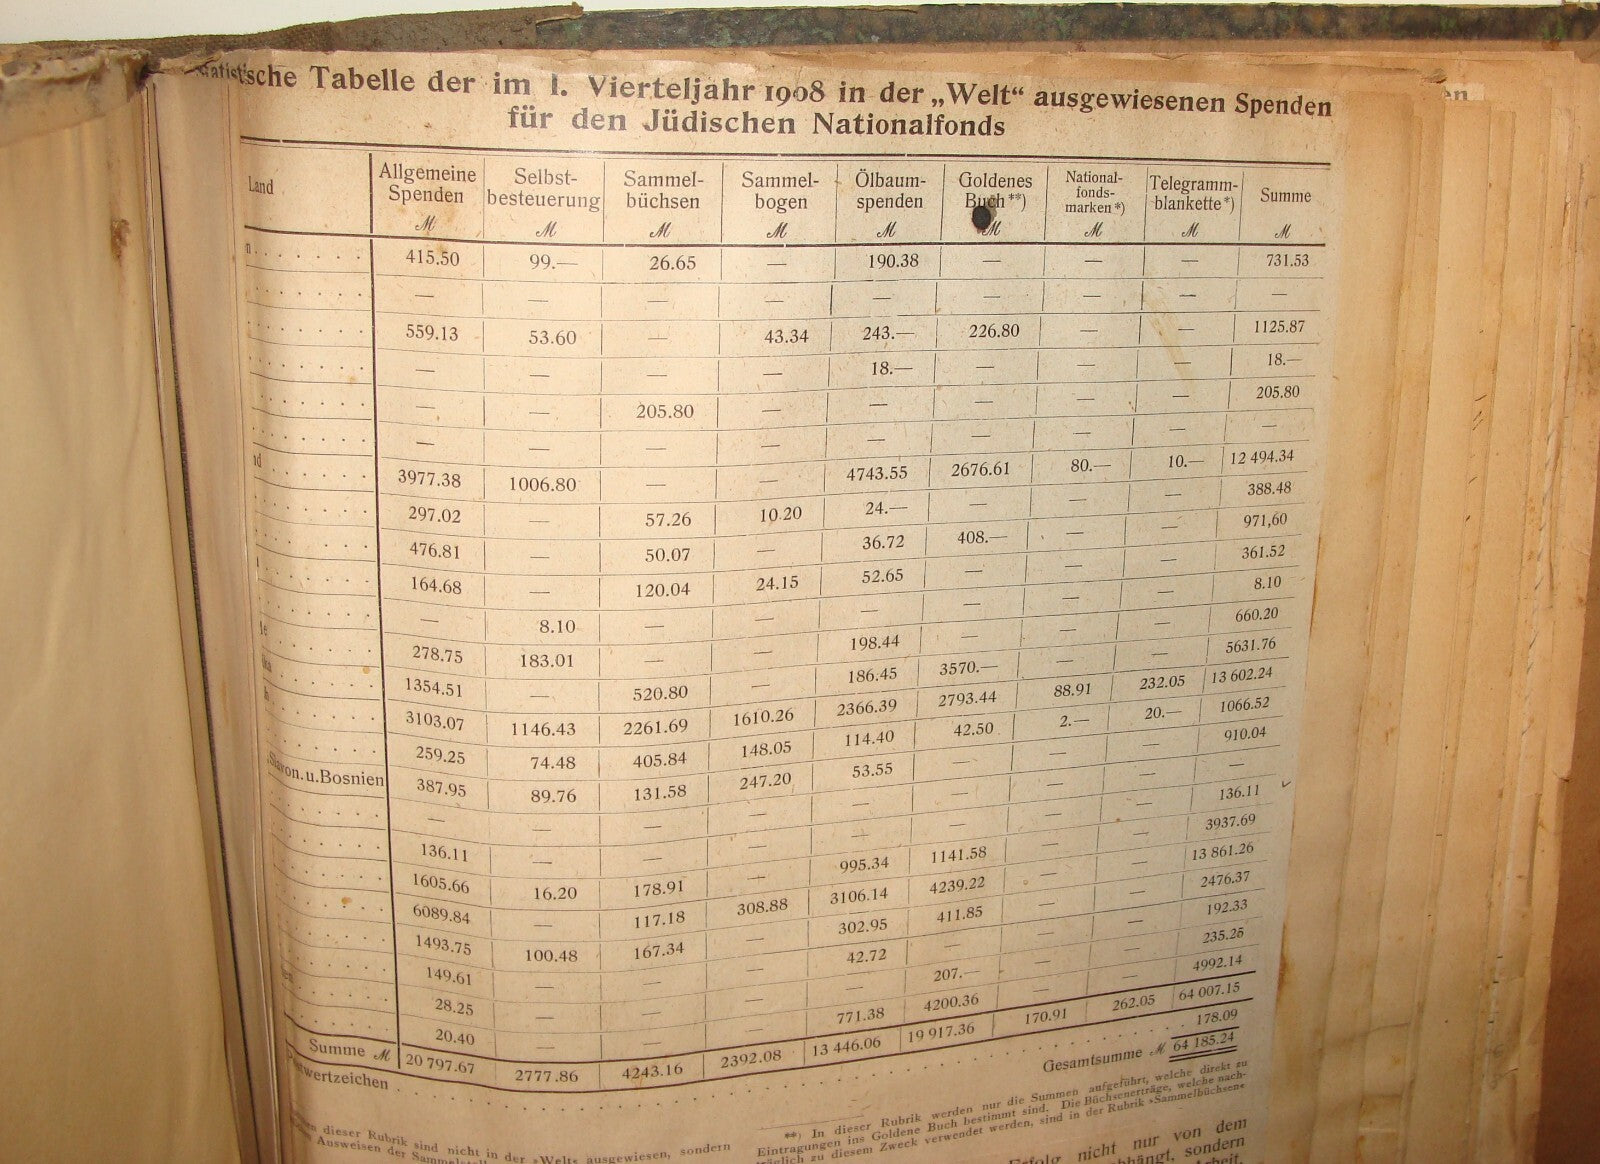 Statistische Tabelle der im I. Vierteljahr 1908 in der „Welt“ ausgewiesenen Spenden
für den Jüdischen Nationalfonds
Land | Allgemeine Spenden ℳ | Selbst-besteuerung ℳ | Sammel-büchsen ℳ | Sammel-bogen ℳ | Ölbaum-spenden ℳ | Goldenes Buch**) ℳ | National-fonds-marken*) ℳ | Telegramm-blankette*) ℳ | Summe ℳ
n . . . . . . . 415.50 99.— 26.65 — 190.38 — — — 731.53
. . . . . . . . — — — — — — — — —
. . . . . . . . 559.13 53.60 — 43.34 243.— 226.80 — — 1125.87
. . . . . . . . — — — — 18.— — — — 18.—
. . . . . . . . — — 205.80 — — — — — 205.80
. . . . . . . . — — — — — — — — —
nd . . . . . . 3977.38 1006.80 — — 4743.55 2676.61 80.— 10.— 12 494.34
. . . . . . . . 297.02 — 57.26 10.20 24.— — — — 388.48
. . . . . . . . 476.81 — 50.07 — 36.72 408.— — — 971,60
. . . . . . . . 164.68 — 120.04 24.15 52.65 — — — 361.52
. . . . . . . . — 8.10 — — — — — — 8.10
. . . . . . . 278.75 183.01 — — 198.44 — — — 660.20
. . . . . . 1354.51 — 520.80 — 186.45 3570.— — — 5631.76
. . . . . . . 3103.07 1146.43 2261.69 1610.26 2366.39 2793.44 88.91 232.05 13 602.24
. . . . . . . 259.25 74.48 405.84 148.05 114.40 42.50 2.— 20.— 1066.52
Slavon. u. Bosnien 387.95 89.76 131.58 247.20 53.55 — — — 910.04
. . . . . . . — — — — — — — — —
. . . . . . . 136.11 — — — — — — — 136.11
. . . . . . . 1605.66 16.20 178.91 — 995.34 1141.58 — — 3937.69
. . . . . . . 6089.84 — 117.18 308.88 3106.14 4239.22 — — 13 861.26
. . . . . . . 1493.75 100.48 167.34 — 302.95 411.85 — — 2476.37
. . . . . . . 149.61 — — — 42.72 — — — 192.33
. . . . . . 28.25 — — — — 207.— — — 235.25
. . . . . . . 20.40 — — — 771.38 4200.36 — — 4992.14
Summe ℳ 20 797.67 2777.86 4243.16 2392.08 13 446.06 19 917.36 170.91 262.05 64 007.15
Postwertzeichen . . . . . . . . . . . . . . . . 178.09
Gesamtsumme ℳ 64 185.24
dieser Rubrik sind nicht in der »Welt« ausgewiesen, sondern
Ausweisen der
**) In dieser Rubrik werden nur die Summen aufgeführt, welche direkt zu
Eintragungen ins Goldene Buch bestimmt sind. Die Büchsenerträge, welche nach-
träglich zu diesem Zweck verwendet werden, sind in der Rubrik »Sammelbüchsen«
Erfolg nicht nur von dem
sondern